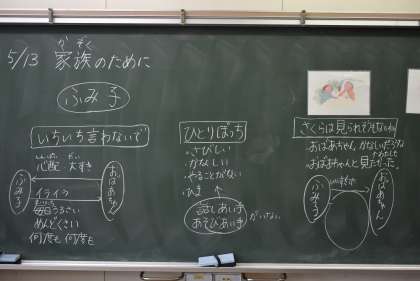 5/13 家族のために
かぞく
ふみ子
いちいち言わないで
しんぱい だい
心配 大すき
ふみ子
おばあちゃん
イライラ
まいにち
毎日うるさい
めんどくさい
何度も何度も
ひとりぼっち
・さびしい
・かなしい
・やることがない
・ひま
話しあい手
あそびあい手
がいない
さくらは見られそうもないね
おばあちゃん、かなしい
おばあちゃんと見たかった。
ふみ子
おばあちゃん